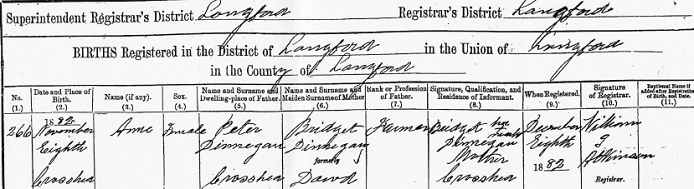 Superintendent Registrar's District Longford Registrar's District Longford
BIRTHS Registered in the District of Longford in the Union of Longford
in the County of Longford
No. Date and Place of Birth. Name (if any). Sex. Name and Surname and Dwelling-place of Father. Name and Surname and Maiden Surname of Mother Rank or Profession of Father. Signature, Qualification, and Residence of Informant. When Registered. Signature of Registrar. Baptismal Name if added after Registration of Birth, and Date.
(1.) (2.) (3.) (4.) (5.) (6.) (7.) (8.) (9.) (10.) (11.)
266 1882 November Eighth Anne Female Peter Dinnegan Bridget Dinnegan formerly Dowd Farmer Bridget her mark Dinnegan Mother December Eighth 1882 William Atkinson Registrar.